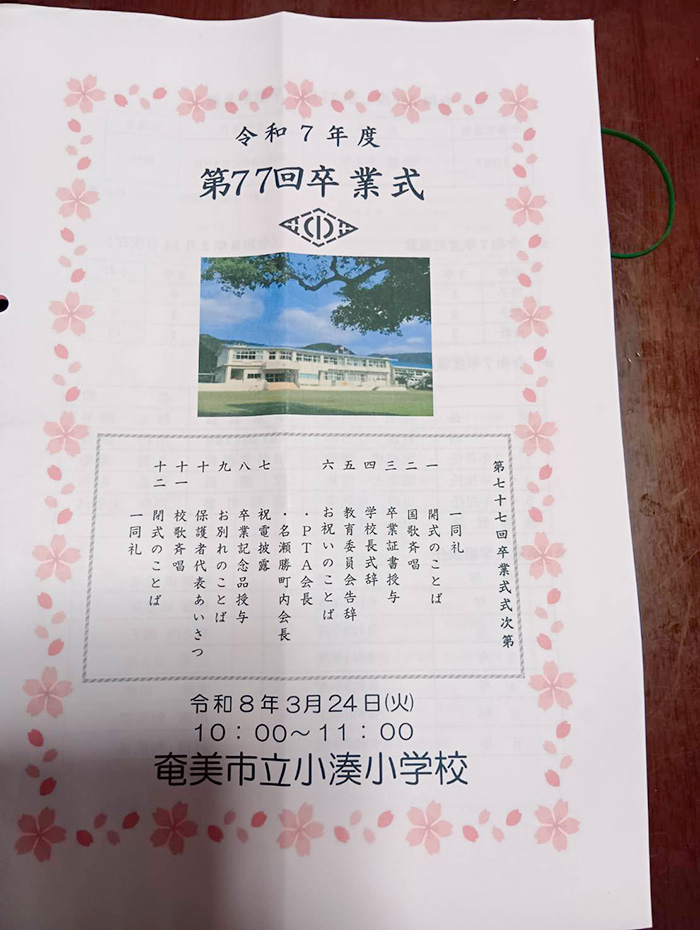 令和7年度
第77回卒業式
小
第七十七回卒業式式次第
一同礼
一 開式のことば
二 国歌斉唱
三 卒業証書授与
四 学校長式辞
五 教育委員会告辞
六 お祝いのことば
・PTA会長
・名瀬勝町内会長
七 祝電披露
八 卒業記念品授与
九 お別れのことば
十 保護者代表あいさつ
十一 校歌斉唱
十二 閉式のことば
一同礼
令和8年3月24日(火)
10:00~11:00
奄美市立小湊小学校